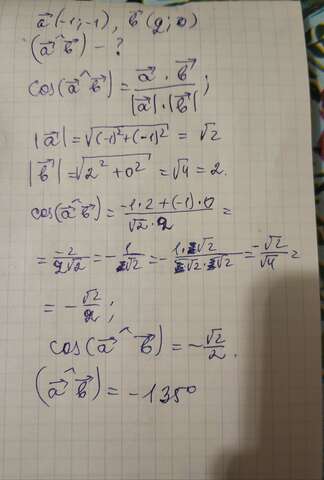 a⃗(-1;-1), b⃗(2;0)
(a⃗^b⃗) - ?
cos(a⃗^b⃗) = a⃗ · b⃗ / |a⃗|·|b⃗| ;
|a⃗| = √((-1)²+(-1)²) = √2
|b⃗| = √(2²+0²) = √4 = 2.
cos(a⃗^b⃗) = -1·2+(-1)·0 / √2·2 =
= -2/2√2 = -1/√2 = - 1·√2/√2·√2 = -√2/√4 =
= - √2/2 ;
cos(a⃗^b⃗) = - √2/2 .
(a⃗^b⃗) = -135°